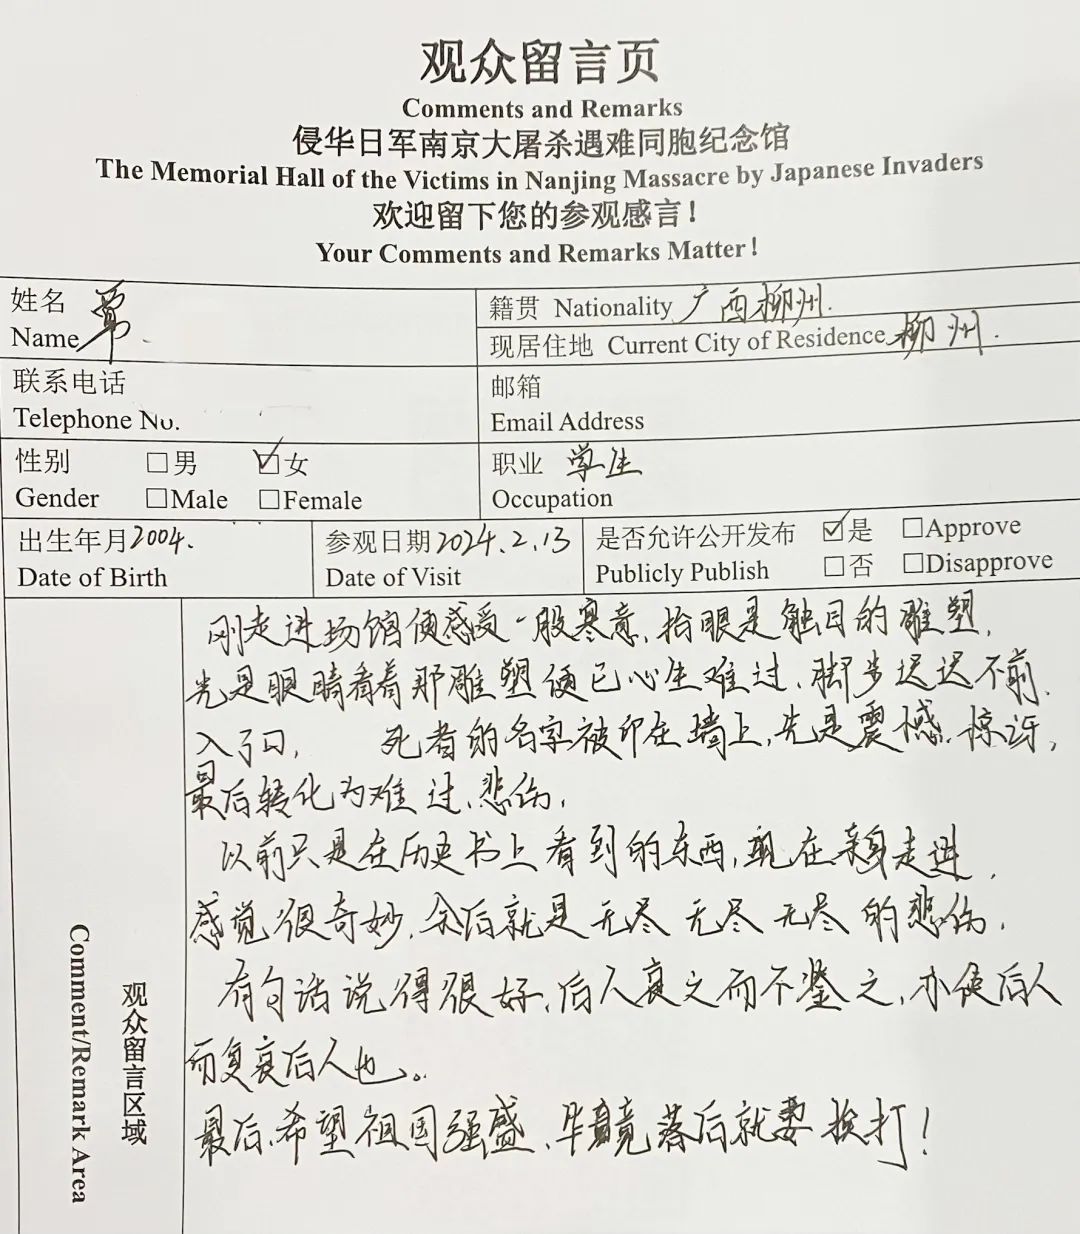 观众留言页
Comments and Remarks
侵华日军南京大屠杀遇难同胞纪念馆
The Memorial Hall of the Victims in Nanjing Massacre by Japanese Invaders
欢迎留下您的参观感言！
Your Comments and Remarks Matter！
姓名
Name
籍贯 Nationality 广西柳州.
现居住地 Current City of Residence 柳州.
联系电话
Telephone No.
邮箱
Email Address
性别 □男 ☑女
Gender □Male □Female
职业 学生
Occupation
出生年月 2004.
Date of Birth
参观日期 2024.2.13
Date of Visit
是否允许公开发布 ☑是 □Approve
Publicly Publish □否 □Disapprove
观众留言区域
Comment/Remark Area
刚走进场馆便感受一股寒意,抬眼是触目的雕塑,
光是眼睛看着那雕塑便已心生难过、脚步迟迟不前、
入了口, 死者的名字被印在墙上,先是震憾、惊讶,
最后转化为难过、悲伤,
以前只是在历史书上看到的东西,现在亲身走进,
感觉很奇妙,余后就是无尽 无尽 无尽 的悲伤,
有句话说得很好,后人哀之而不鉴之,亦使后人
而复哀后人也。
最后,希望祖国强盛、毕竟落后就要挨打！